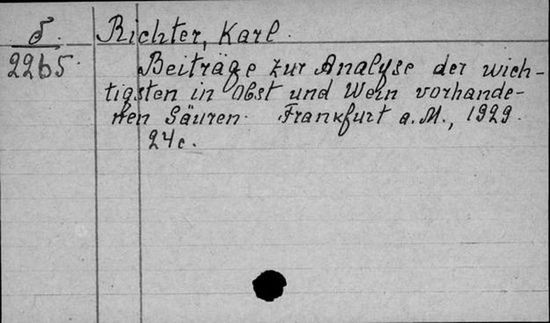 δ. Richter, Karl.
2265. Beiträge zur Analyse der wich-
tigsten in Obst und Wein vorhande-
nen Säuren. Frankfurt a. M., 1929.
24 c.